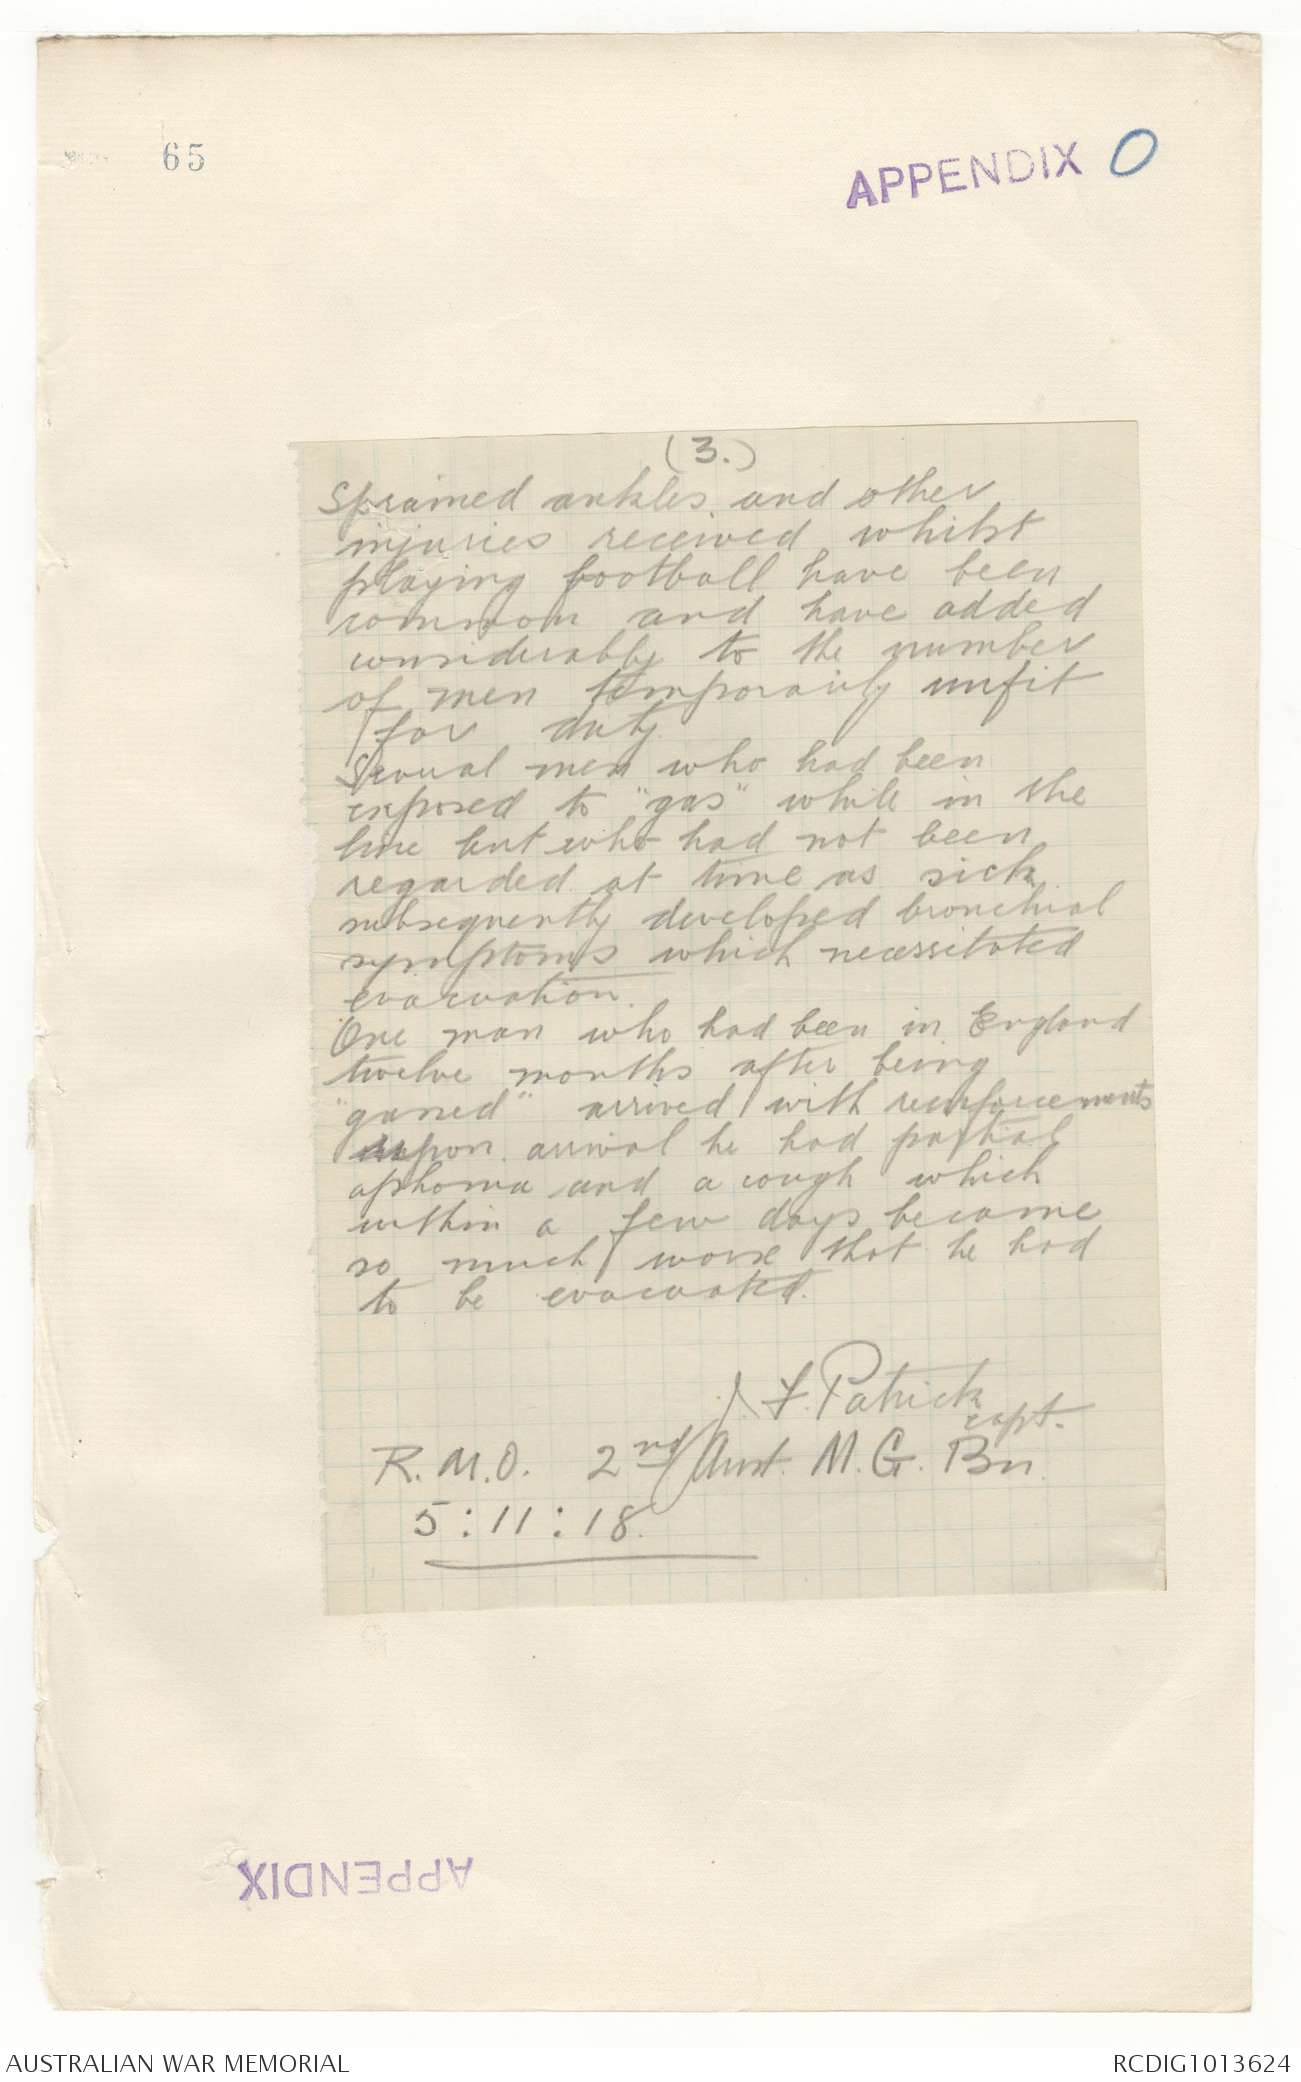 65
APPENDIX O
(3.)
Sprained ankles, and other
injuries received whilst
playing football have been
common and have added
considerably to the number
of men temporarily unfit
for duty.
Several men who had been
exposed to "gas" while in the
line but who had not been
regarded at time as sick
subsequently developed bronchial
symptoms which necessitated
evacuation.
One man who had been in England
twelve months after being
"gassed" arrived with reinforcements
upon arrival he had partial
aphonia and a cough which
within a few days became
so much worse that he had
to be evacuated.
J. F. Patrick
capt.
R.M.O. 2nd Aust. M.G. Bn.
5:11:18.
APPENDIX
AUSTRALIAN WAR MEMORIAL
RCDIG1013624